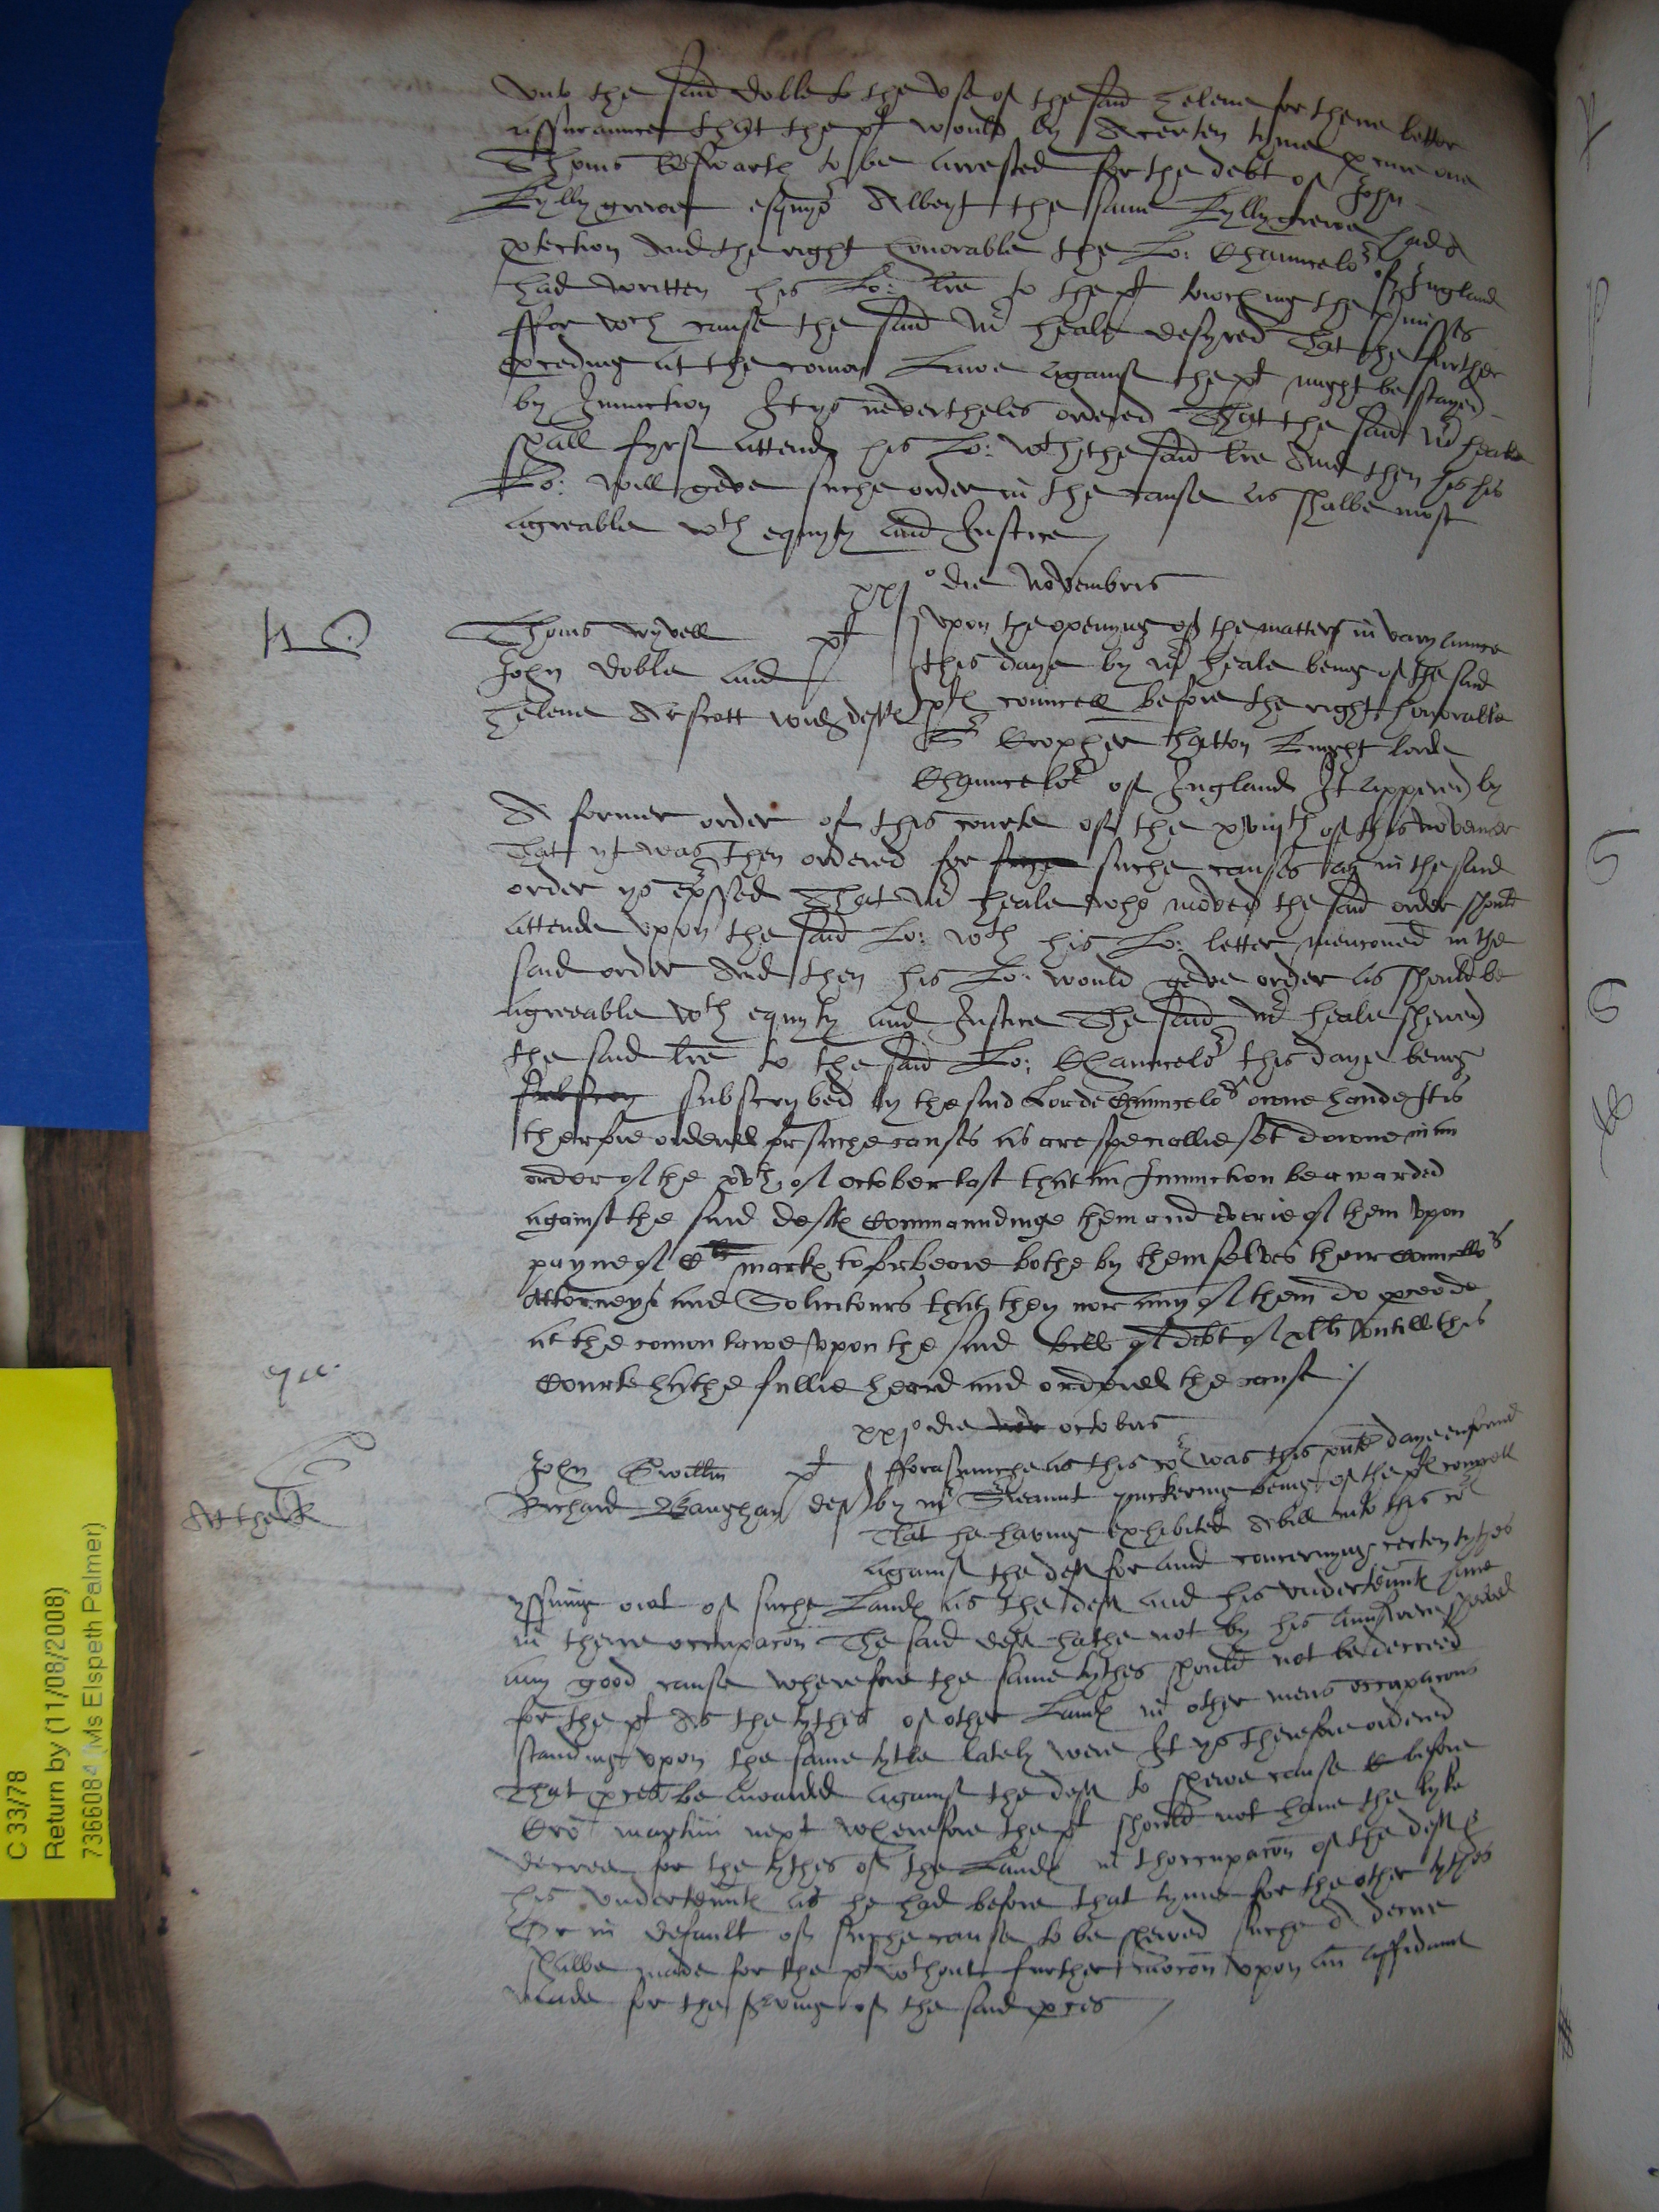 unto the said doble to the use of the said helene for there better
assuraunce that the plt would by A certen tyme procure one
Thoms Boswarth to be arrested for the debt of John
Kyllygrewe esquyor Albeyt the same Kyllygrewe had A
protection And the right honorable the Lo: Chauncelor of England
had written his Lo: lre to the plt towching the premisses
ffor wch cause the said mr heale desyred That the further
proceding at the comon Lawe against the plt might be stayed
by Iniunction It ys nevertheles ordered That the said mr heale
shall fyrst attend his Lo: wth the said lre And then his
Lo: will geve suche order in the cause as shalbe most
agreable wth equyty and Justice
xxjo die Novembris
Thoms wyvell plt
John doble and
helene Arscott wid deftes
upon the openyng of the matters in varyaunce
this daye by mr heale being of the said
pltes councell before the right honorable
Sr Cropher hatton knyght lorde
Chauncelor of England It appered by
A former order of this courte of the xviijth of this november
That yt was then ordered for suche causes as in the said
order ys expssed That mr heale who moved the said order should
attende upon the said Lo: wth his Lo: letter menconed in the
said order And then his Lo: would geve order as should be
agreeable wth equyty and Justice The said mr heale shewed
the said lre to the said Lo: Chauncelor this daye being
subscrybed by the said Lorde Chauncelors owne hande It is
therfore ordered for suche causes as are speciallie set downe in an
order of the xvth of October last that an Iniunction be awarded
against the said deftes Commaundinge them and everie of them upon
payne of Cli markes to forbeare bothe by themselves their Councellors
Attorneys and Solicitours that they nor any of them do procede
at the comon lawe upon the said bill of debt of xlli untill this
Courte hathe fullie heard and ordered the cause /
xxjo die nov octobris
John Gwillim plt
Richard Vaughan deft
At the
fforasmuche as this cor was this pnte daye enformed
by mr Sreaunt puckering being of the pltes councell
That he having exhibited A bill into this cor
against the deft for and concernyng certen tythes
yssuing owt of suche Landes as the deft and his undertenntes have
in theire occupacon The said deft hathe not by his aunswere shewed
any good cause wherefore the same tythes should not be decreed
for the plt As the tythes of other Landes in other mens occupacons
standing upon the same tytle lately were It ys therefore ordered
That proces be awarded against the deft to shewe cause before
Cro martini next wherefore the plt should not have the lyke
decree for the tythes of the Landes in thoccupacon of the deft &
his undertenntes as he had before that tyme for the other tythes
Or in default of suche cause to be shewed suche A decree
shalbe made for the plt wthout further mocon upon an affidavit
made for the serving of the said proces /
C 33/78
Return by (11/08/2008)
7366084 (Ms Elspeth Palmer)